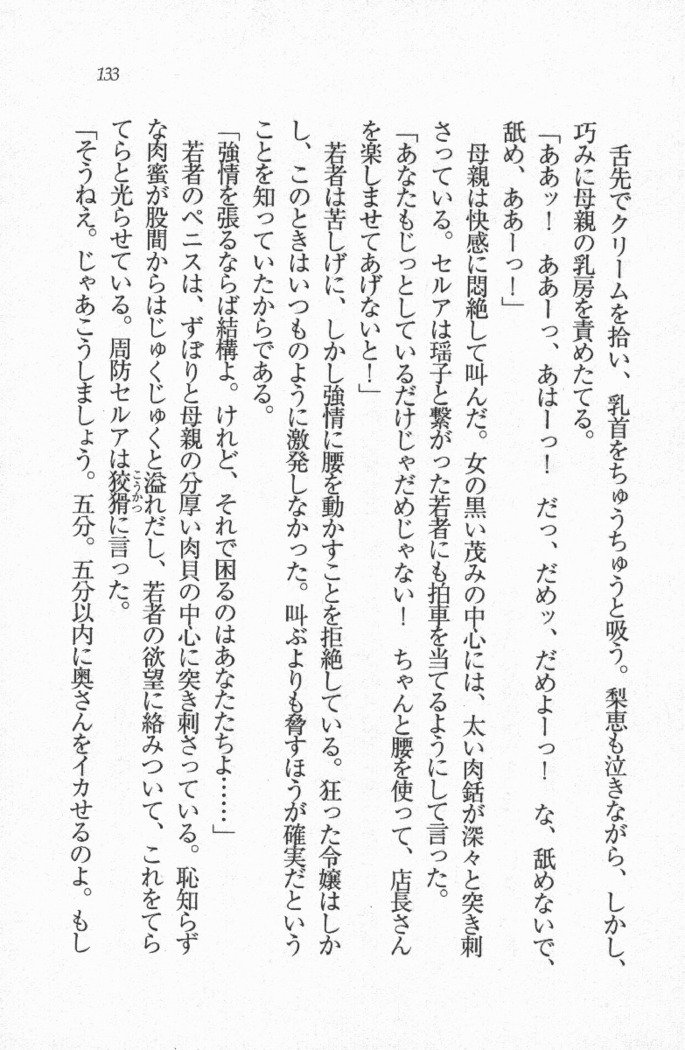 133
舌先でクリームを拾い、乳首をちゅうちゅうと吸う。梨恵も泣きながら、しかし、
巧みに母親の乳房を責めたてる。
「ああッ！　ああーっ、あはーっ！　だっ、だめッ、だめよーっ！　な、舐めないで、
舐め、ああーっ！」
母親は快感に悶絶して叫んだ。女の黒い茂みの中心には、太い肉銛が深々と突き刺
さっている。セルアは瑶子と繋がった若者にも拍車を当てるようにして言った。
「あなたもじっとしているだけじゃだめじゃない！　ちゃんと腰を使って、店長さん
を楽しませてあげないと！」
若者は苦しげに、しかし強情に腰を動かすことを拒絶している。狂った令嬢はしか
し、このときはいつものように激発しなかった。叫ぶよりも脅すほうが確実だという
ことを知っていたからである。
「強情を張るならば結構よ。けれど、それで困るのはあなたたちよ……」
若者のペニスは、ずぼりと母親の分厚い肉貝の中心に突き刺さっている。恥知らず
な肉蜜が股間からはじゅくじゅくと溢れだし、若者の欲望に絡みついて、これをてら
てらと光らせている。周防セルアは狡猾に言った。
こうかつ
「そうねえ。じゃあこうしましょう。五分。五分以内に奥さんをイカせるのよ。もし